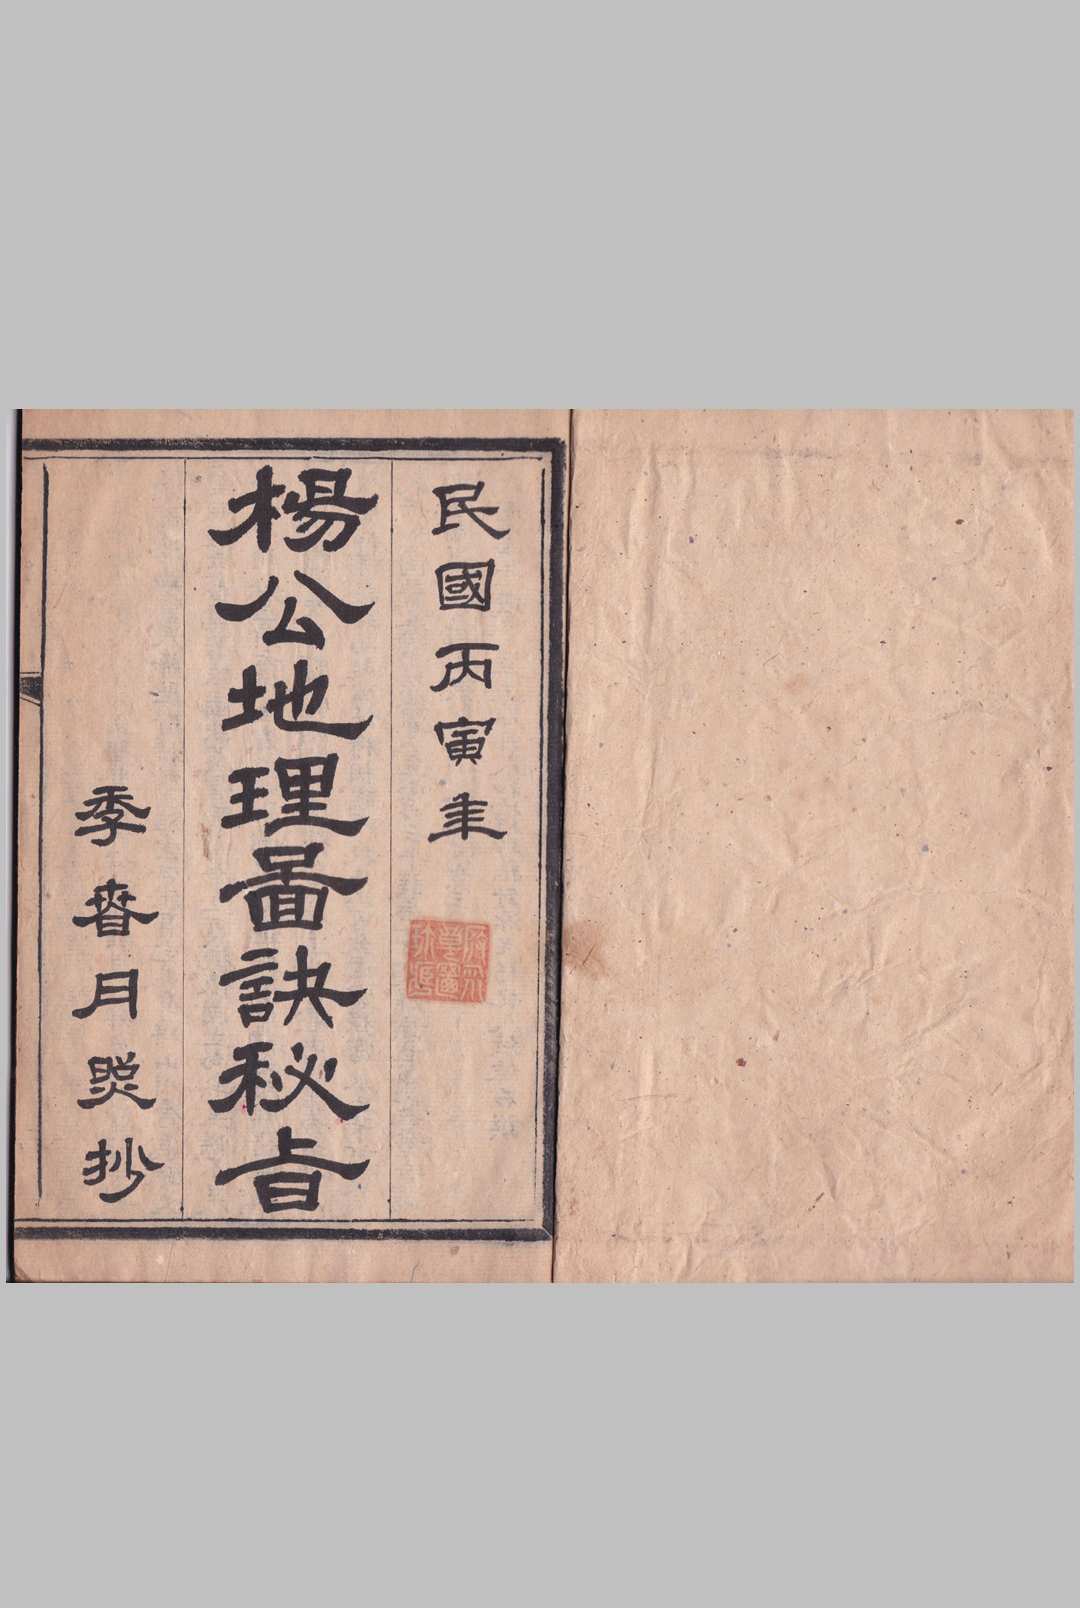 民國丙寅年
楊公地理圖訣秘旨
季春月照抄